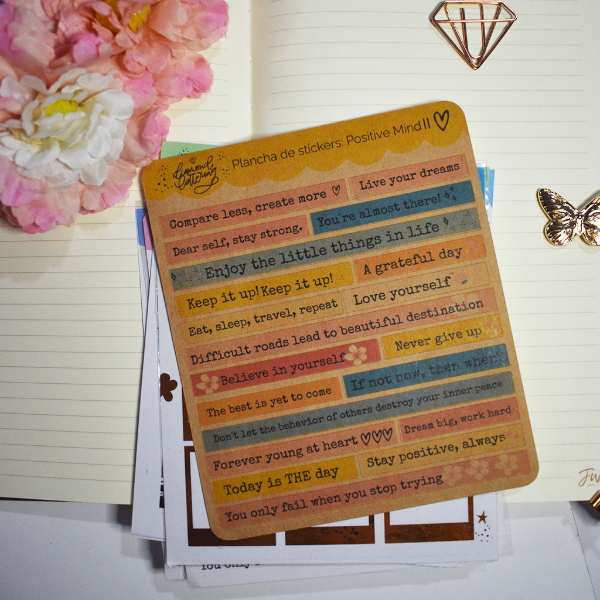 Diamond Lettering
Plancha de stickers: Positive Mind II
Compare less, create more
Live your dreams
Dear self, stay strong.
You're almost there!
Enjoy the little things in life
Keep it up! Keep it up!
A grateful day
Eat, sleep, travel, repeat
Love yourself
Difficult roads lead to beautiful destination
Believe in yourself
Never give up
The best is yet to come
If not now, then when
Don't let the behavior of others destroy your inner peace
Forever young at heart
Dream big, work hard
Today is THE day
Stay positive, always
You only fail when you stop trying
You only